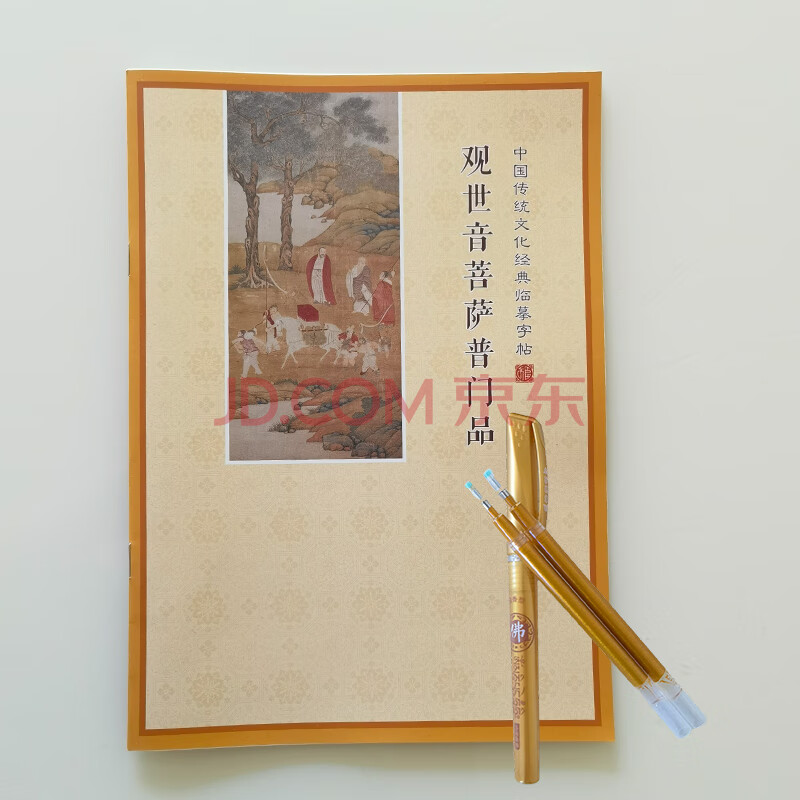 中国传统文化经典临摹字帖
观世音菩萨普门品
JD.COM 京东
佛